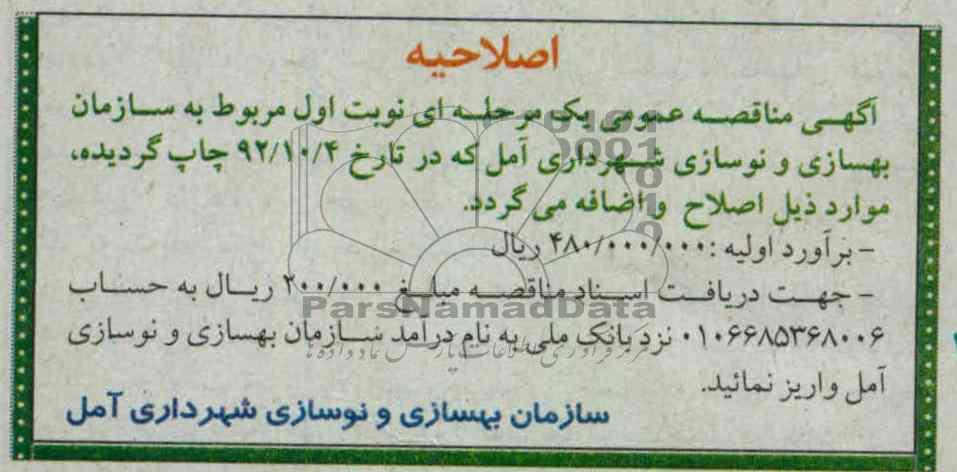 اصلاحیه
آگهی مناقصه عمومی یک مرحله ای نوبت اول مربوط به سازمان
بهسازی و نوسازی شهرداری آمل که در تارخ ۹۲/۱۰/۴ چاپ گردیده،
موارد ذیل اصلاح و اضافه می گردد.
- برآورد اولیه :۴۸۰/۰۰۰/۰۰۰ ریال
- جهت دریافت اسناد مناقصه مبلغ ۲۰۰/۰۰۰ ریال به حساب
۰۱۰۶۶۸۵۳۶۸۰۰۶ نزد بانک ملی به نام درآمد سازمان بهسازی و نوسازی
آمل واریز نمائید.
سازمان بهسازی و نوسازی شهرداری آمل
ParsNamadData